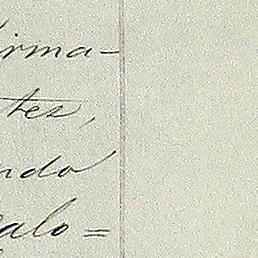 irma-
tes,
ndo
calo=